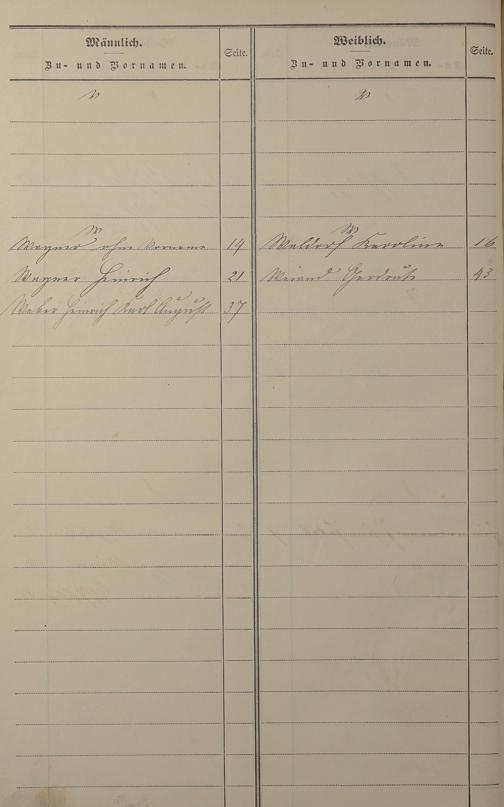 Männlich.
Zu- und Vornamen.
Seite.
V
W
Wagner ohne Vorname 14
Wagner Heinrich 21
Weber Heinrich Karl August 37
Weiblich.
Zu- und Vornamen.
Seite.
V
W
Waldorf Karoline 16
Weiand Gerdrute 43